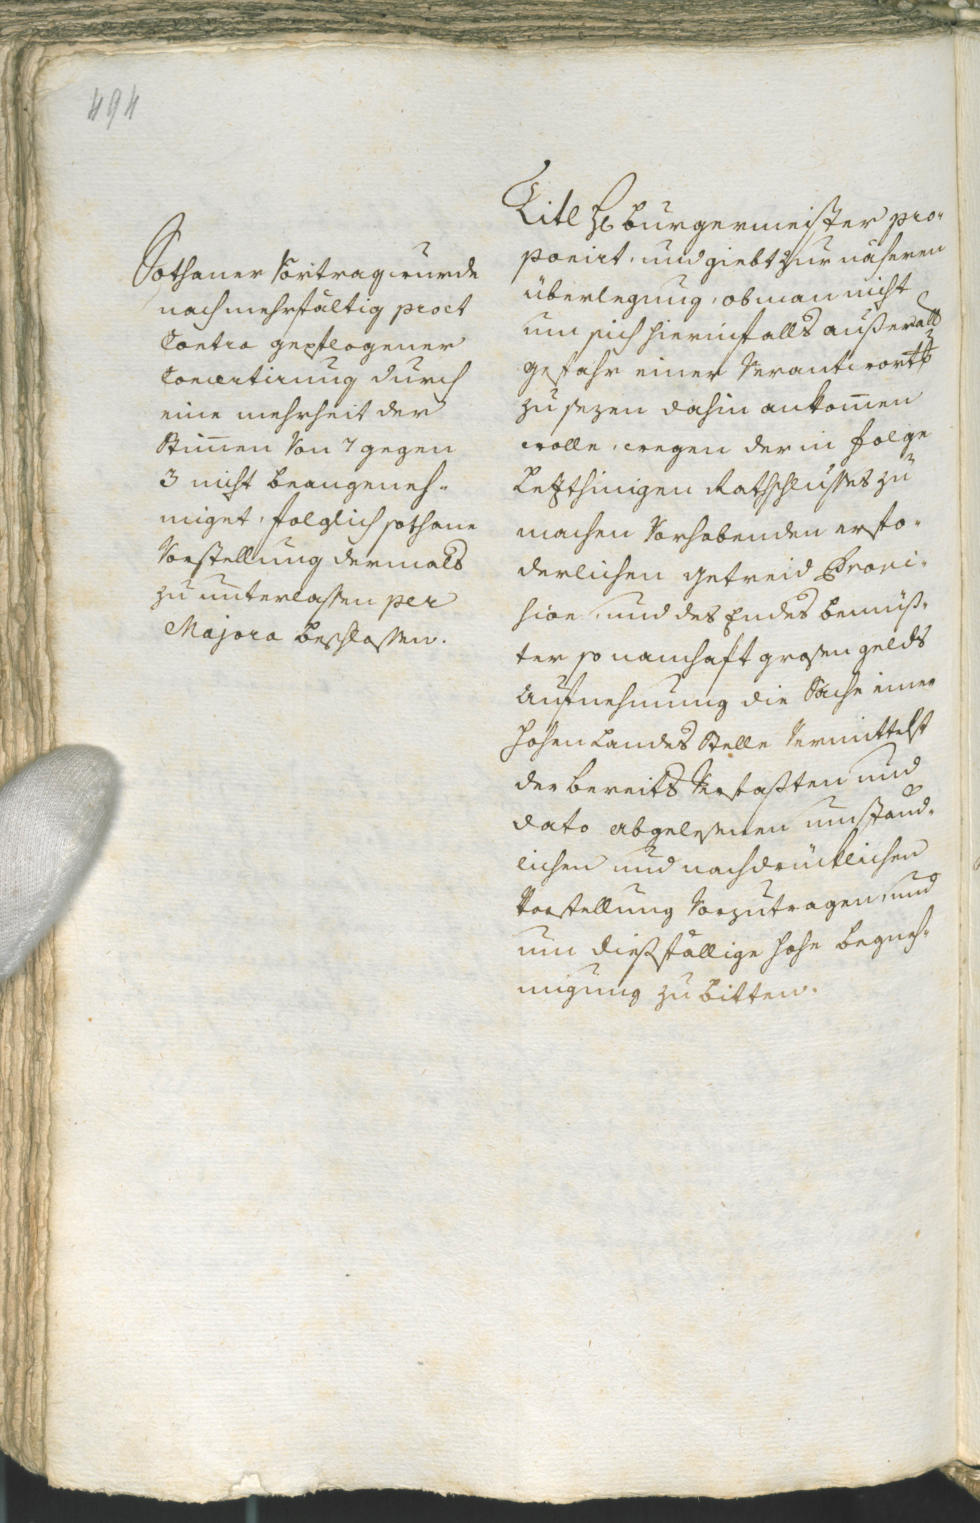 494
Sothaner Vortrag wurde
nach mehrfältig pro et
Contra gepflogener
Concertirung durch
eine mehrheit der
Stim̄en Von 7 gegen
3 nicht beangeneh-
miget, folglich sothane
Vorstellung dermals
zu unterlassen per
Majora beschlossen.
Titl H: burgermeister pro-
ponirt, und giebt zur näheren
überlegung, ob man nicht
um sich hierinfalls außer all
gefahr einer Verantwortg
zu sezen dahin ankom̄en
wolle, wegen der in folge
Letzthinigen Rathschlusses zu
machen Vorhabenden erfo-
derlichen getreid Provi-
sion, und des Endes bemüß-
ter so namhaft grosen gelds
Aufnehmung die Sache einer
hohen Landes Stelle Vermittelst
der bereits Verfaßten und
dato abgelesenen umständ-
lichen und nachdrücklichen
Vorstellung Vorzutragen, und
um dießfällige hohe begneh-
migung zu bitten.